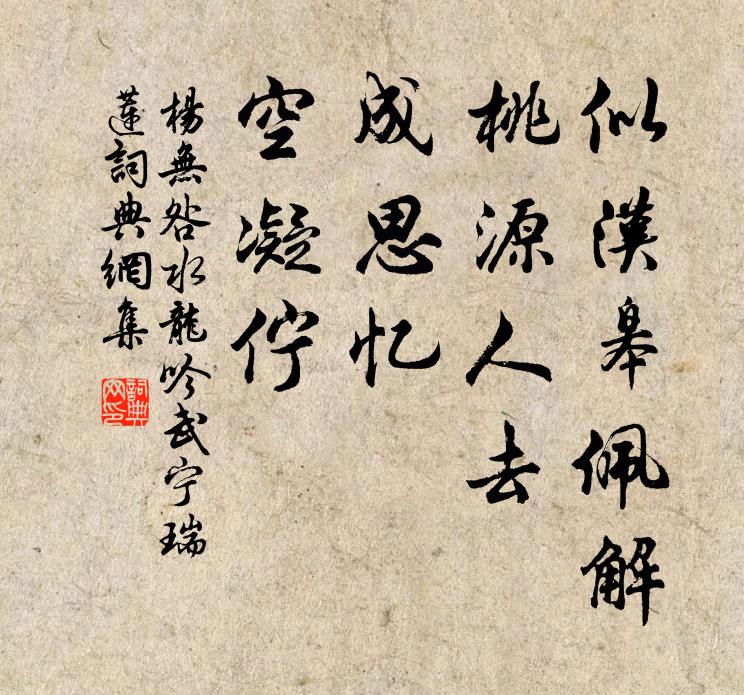 似漢皋佩解
桃源人去
成思忆
空凝佇
楊無咎水龍吟武宁瑞
蓮詞典網集
詞典网印